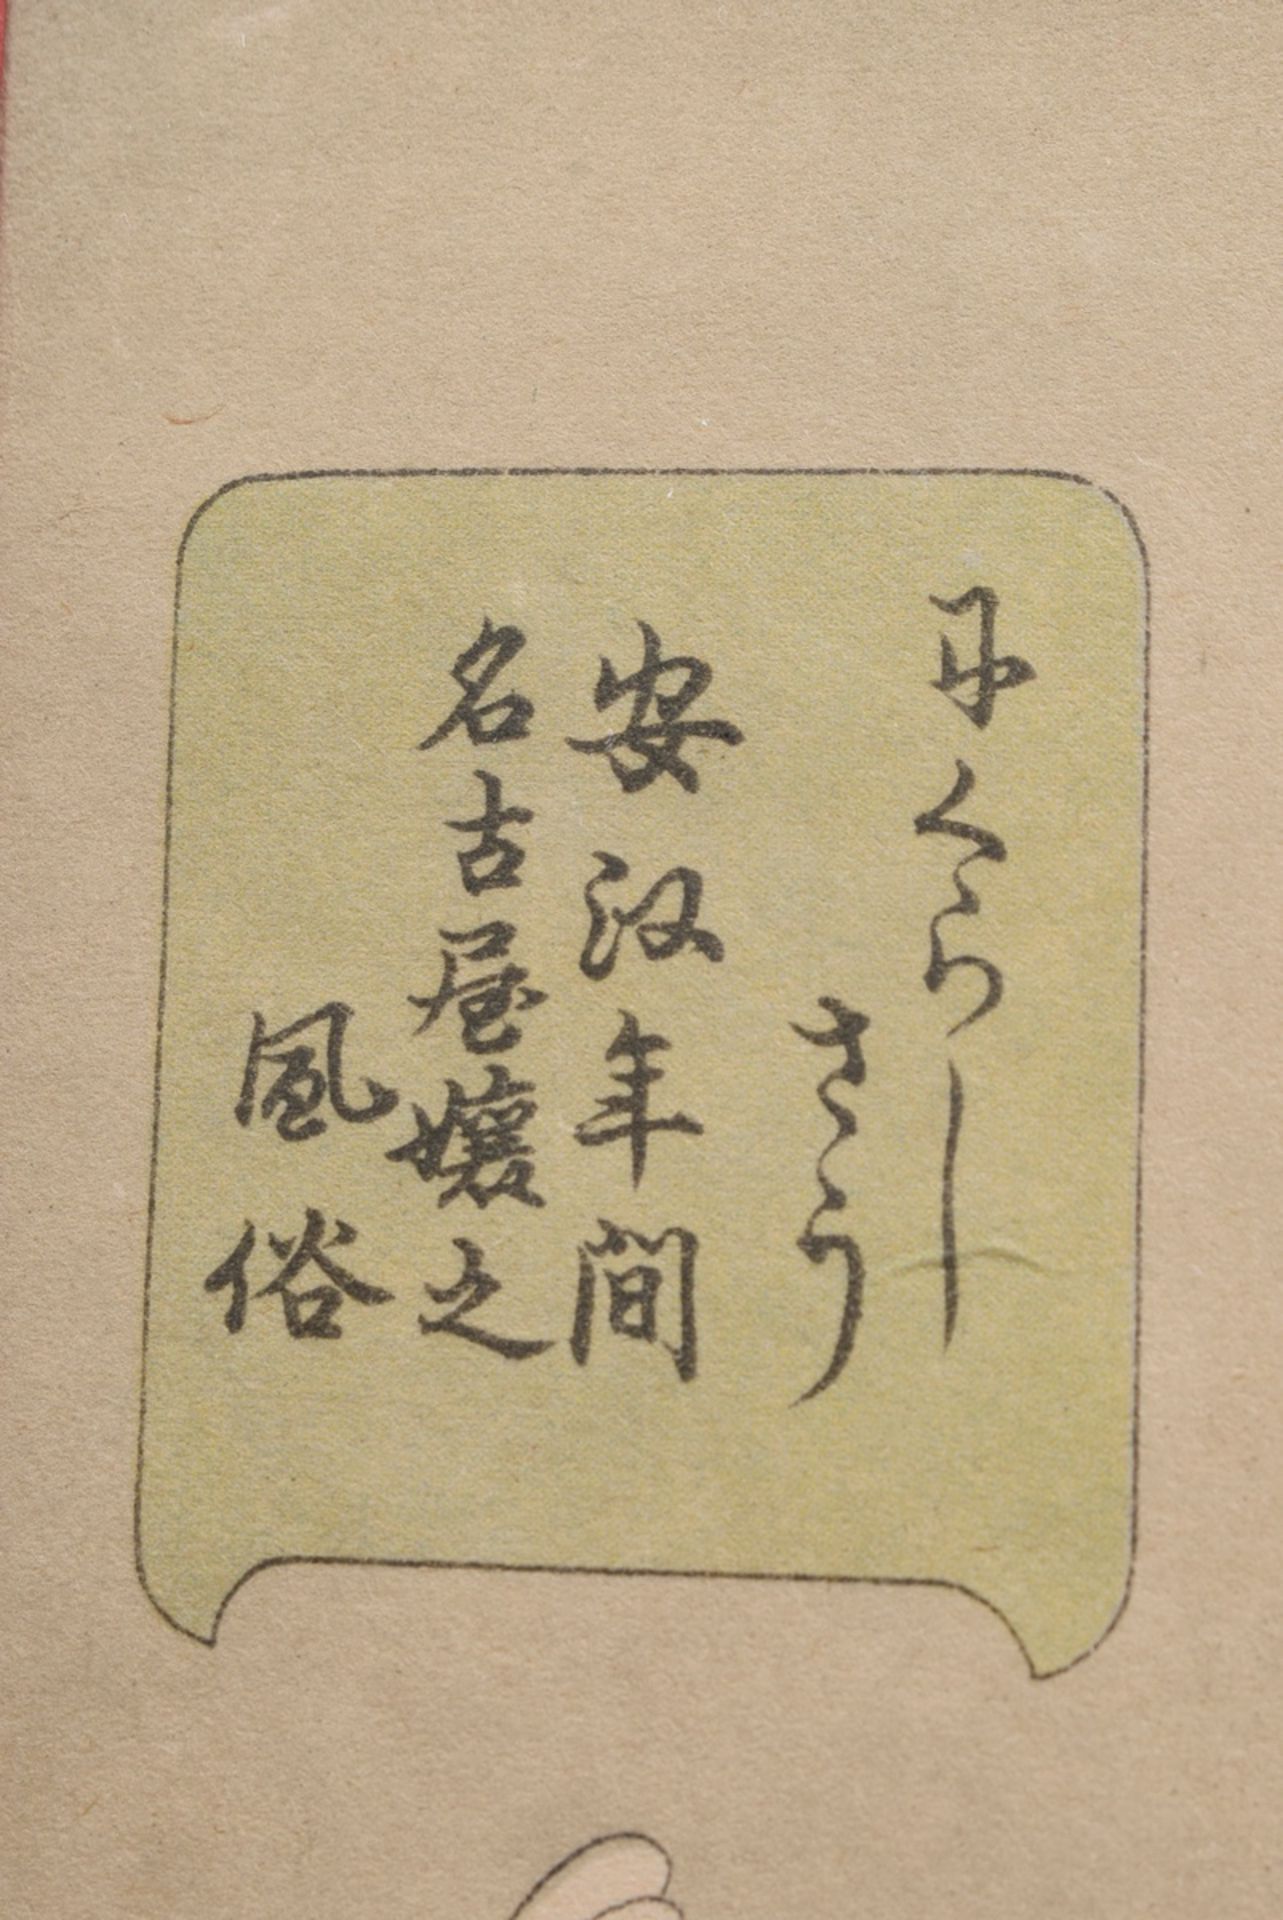 にくらし
さう
安政年間
名古屋嬢之
風俗